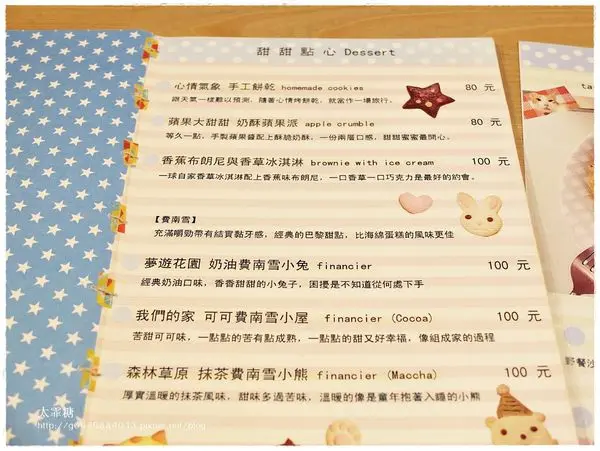 甜甜點心 Dessert
心情氣象 手工餅乾 homemade cookies 80 元
跟天氣一樣難以預測，隨著心情烤餅乾，就當作一場旅行。
蘋果大甜甜 奶酥蘋果派 apple crumble 80 元
等久一點，手製蘋果醬配上酥脆奶酥，一份兩層口感，甜甜蜜蜜最開心。
香蕉布朗尼與香草冰淇淋 brownie with ice cream 100 元
一球自家香草冰淇淋配上香蕉味布朗尼，一口香草一口巧克力是最好的約會。
【費南雪】
充滿嚼勁帶有結實黏牙感，經典的巴黎甜點，比海綿蛋糕的風味更佳
夢遊花園 奶油費南雪小兔 financier 100 元
經典奶油口味，香香甜甜的小兔子，困擾是不知道從何處下手
我們的家 可可費南雪小屋 financier (Cocoa) 100 元
苦甜可可味，一點點的苦有點成熟，一點點的甜又好幸福，像組成家的過程
森林草原 抹茶費南雪小熊 financier (Maccha) 100 元
厚實溫暖的抹茶風味，甜味多過苦味，溫暖的像是童年抱著入睡的小熊
ta
野餐沙
太霏糖